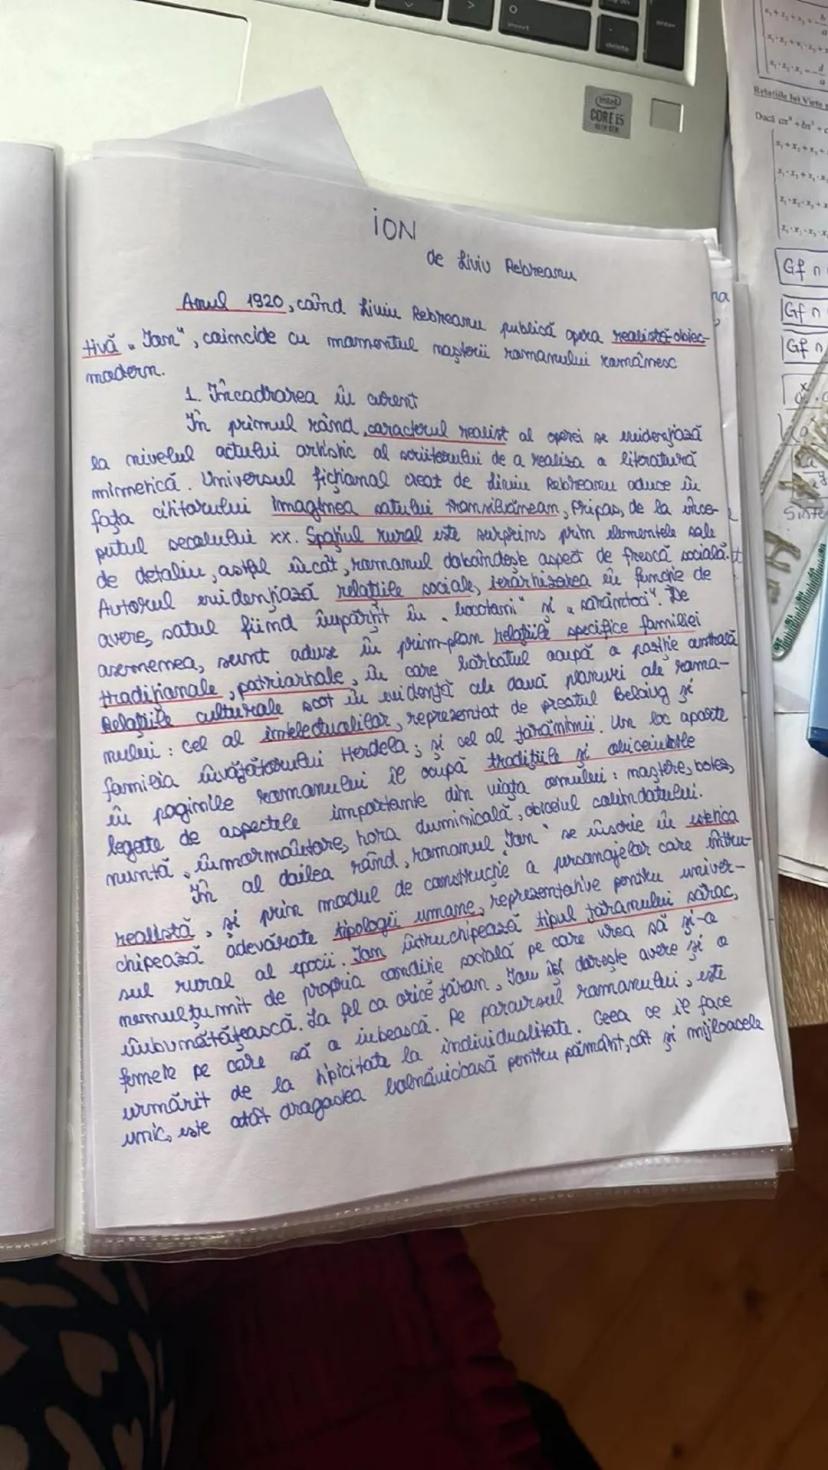 intel
CORE i5
delete
enter
ION
de Liviu Rebreanu
Anul 1920, când Liviu Rebreanu publică opera realistă-obiec-
tivă „Ion", coincide cu momentul nașterii romanului românesc
modern.
1. Încadrarea în curent
În primul rând, caracterul realist al operei se evidențiază
la nivelul actului artistic al scriitorului de a realisa o literatură
mimetică. Universul ficțional creat de Liviu Rebreanu aduce în
fața cititorului imaginea satului transilvănean, Pripas, de la înce-
putul secolului XX. Spațiul rural este surprins prin elementele sale
de detaliu, astfel încât, romanul dobândește aspect de frescă socială.
Autorul evidențiază relațiile sociale, ierarhizarea în funcție de
avere, satul fiind împărțit în „bocotani" și „sărăntoci". De
asemenea, sunt aduse în prim-plan relațiile specifice familiei
tradiționale, patriarhale, în care bărbatul ocupă o poziție centrală
Relațiile culturale scot în evidență cele două planuri ale roma-
nului: cel al intelectualilor, reprezentat de preotul Belciug și
familia învățătorului Herdelea; și cel al țărănimii. Un loc aparte
în paginile romanului îl ocupă tradițiile și obiceiurile
legate de aspectele importante din viața omului: naștere, botez,
nuntă, înmormântare, hora duminicală, obiceiul colindatului.
În al doilea rând, romanul „Ion" se înscrie în estetica
realistă, și prin modul de construcție a personajelor care întru-
chipează adevărate tipologii umane, reprezentative pentru univer-
sul rural al epocii. Ion întruchipează tipul țăranului sărac,
nemulțumit de propria condiție socială pe care vrea să și-o
îmbunătățească. La fel ca orice țăran, Ion își dorește avere și o
femeie pe care să o iubească. Pe parcursul romanului, este
urmărit de la tipicitate la individualitate. Ceea ce îl face
unic, este atât dragostea bolnăvicioasă pentru pământ, cât și mijloacele
Relațiile lui Viete
Dacă
Gf ∩
Gf ∩
Gf ∩